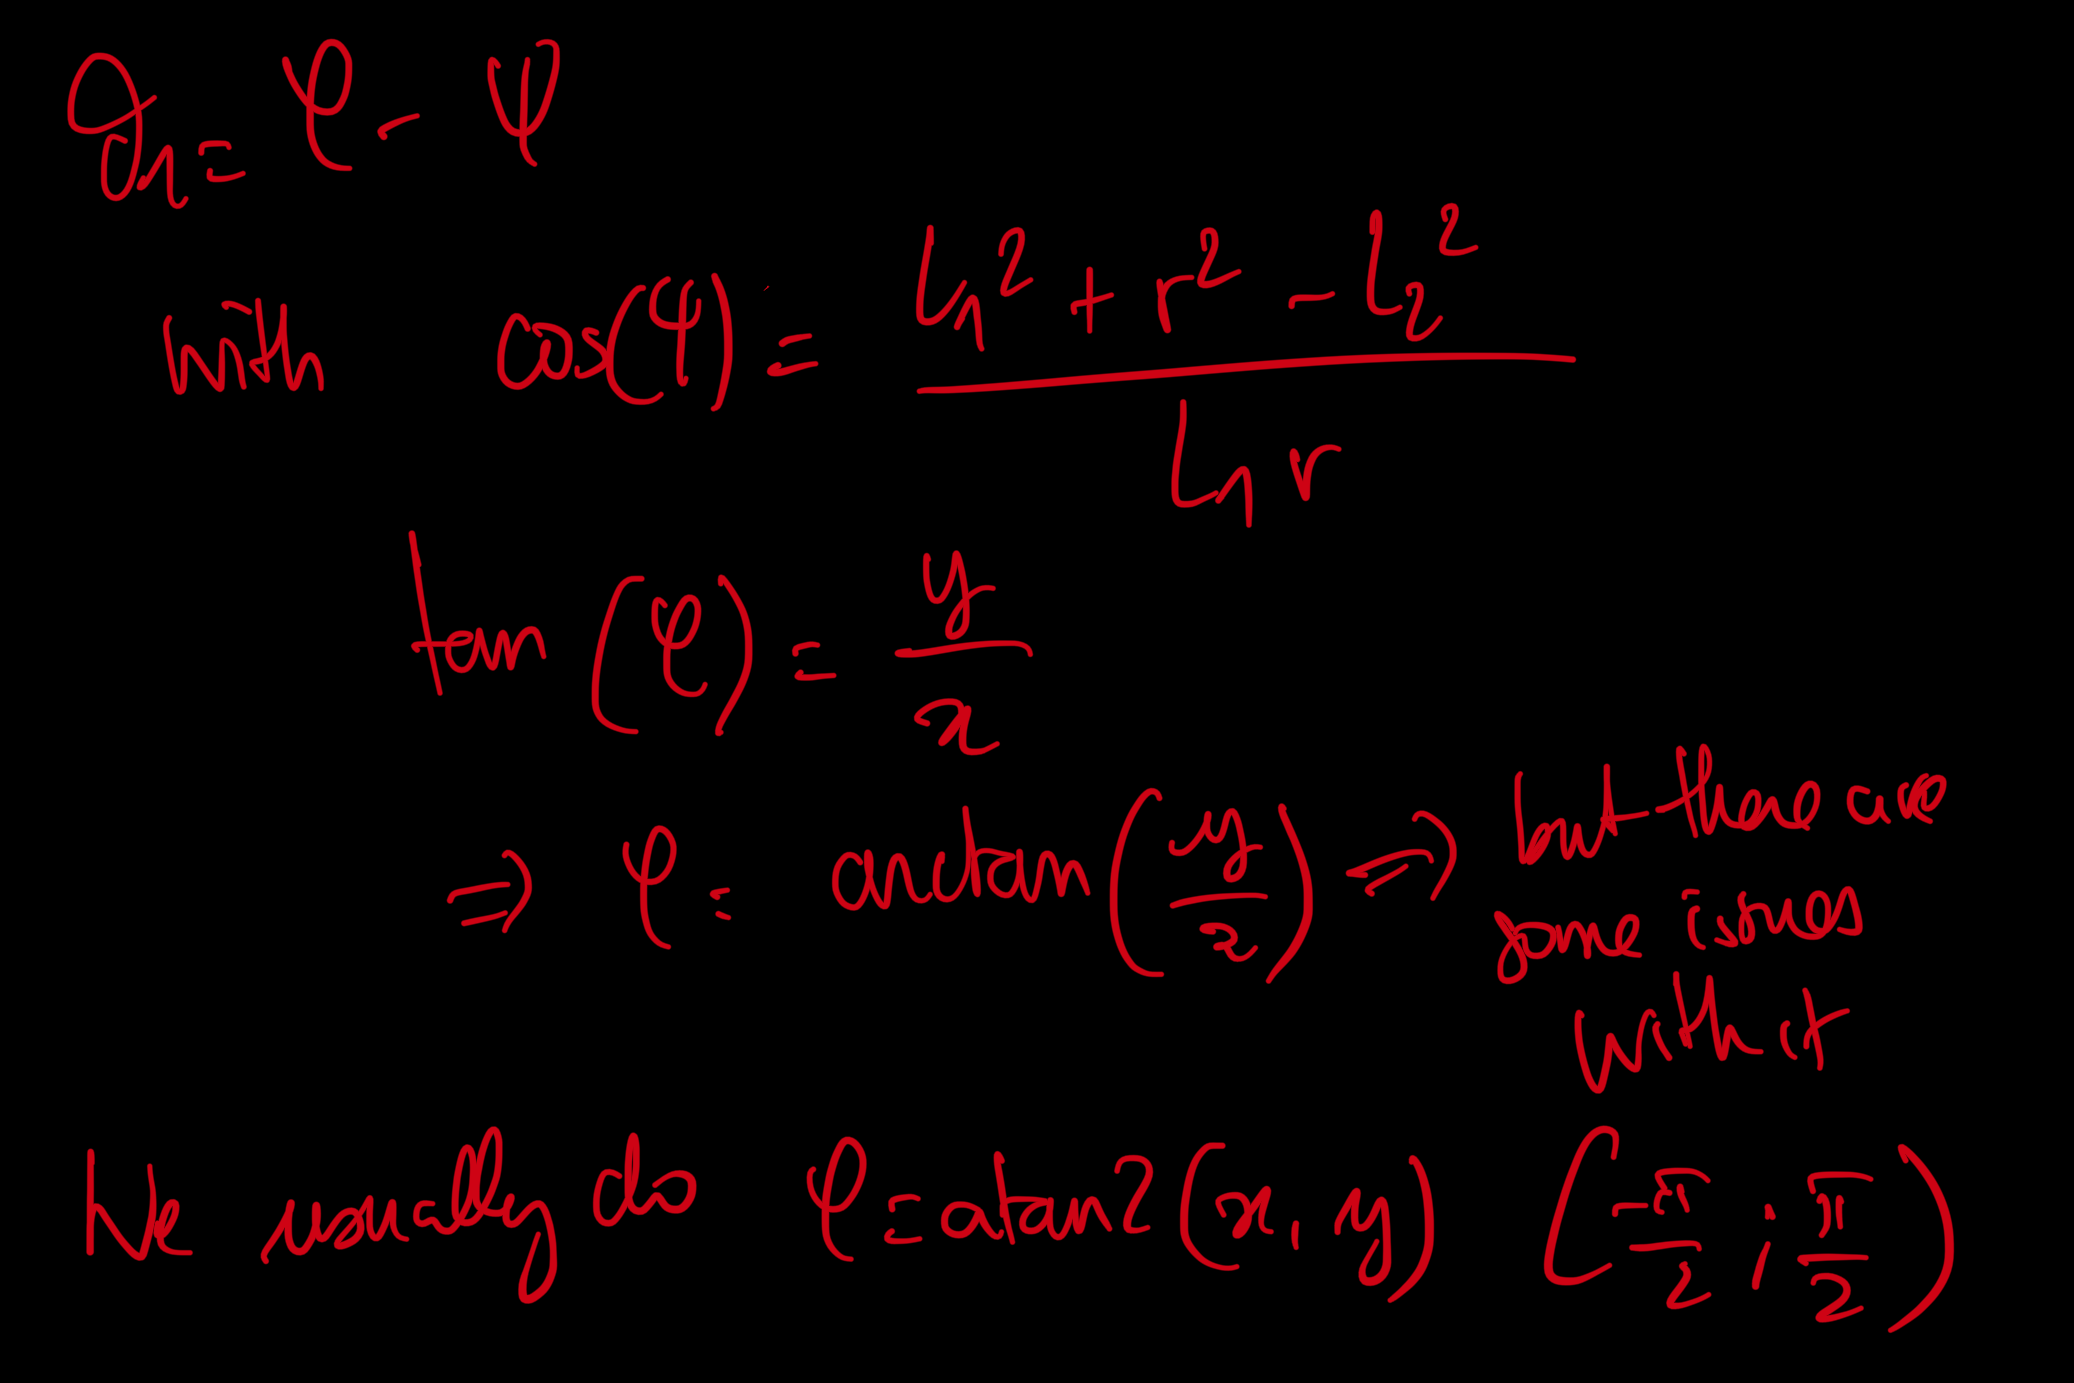 q₁ = φ - ψ
with cos(ψ) = (l₁² + r² - l₂²) / (l₁ r)
tan(φ) = y / x
⇒ φ = arctan(y / x) ⇒ but there are
some issues
with it
We usually do φ = atan2(x, y) (-π/2 ; π/2)